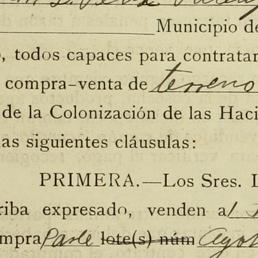 Municipio de
, todos capaces para contratar
compra-venta de terreno
de la Colonización de las Haci
las siguientes cláusulas:
PRIMERA.—Los Sres. L
riba expresado, venden al
mpra Parte lote(s) núm